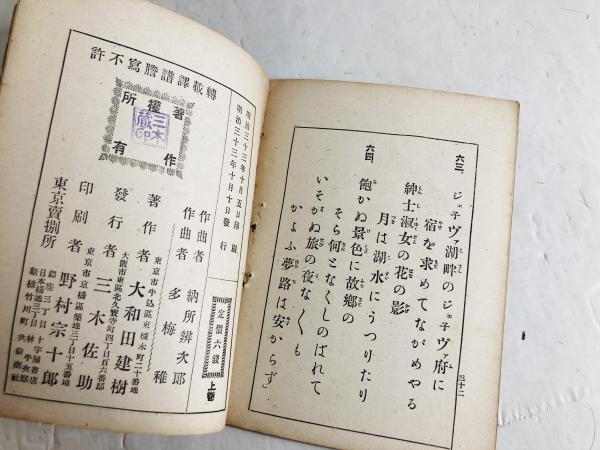 六三、ジェネヴァ湖畔のジェネヴァ府に
宿を求めてながめやる
紳士淑女の花の影
月は湖水にうつりたり
六四、飽かぬ景色に故郷の
そら何となくしのばれて
いそがぬ旅の夜なくも
かよふ夢路は安からず
三十二
明治三十三年十月五日印刷
明治三十三年十月十日發行
定價六錢
上卷
作曲者 納所辨次郎
作曲者 多梅稚
東京市牛込區東榎本町二十番地
著作者 大和田建樹
大阪市東區北久寶寺町四丁目百六番邸
發行者 三木佐助
東京市京橋區築地三丁目十五番地
印刷者 野村宗十郎
東京賣捌所
銀座三丁目 十字屋
日本橋通三丁目 林平次郎
新橋竹川町 共益商社
著作權所有
三木藏印
轉載譯譜謄寫不許